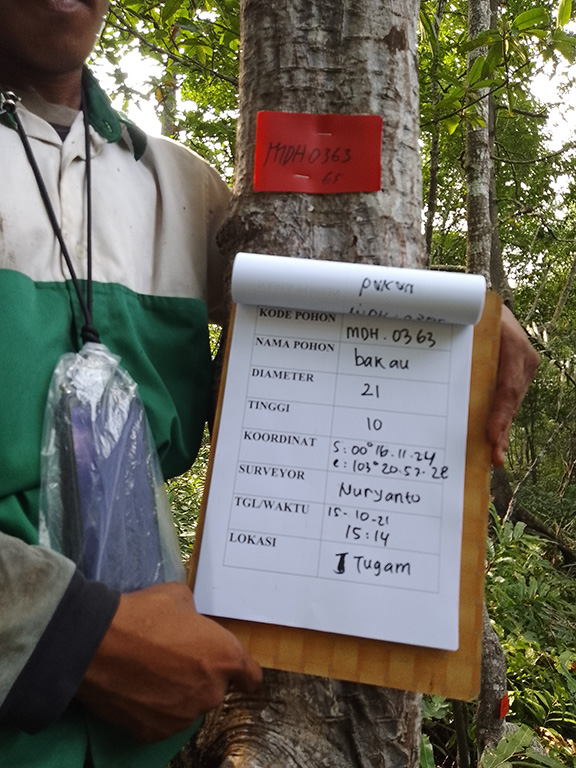 MDH 0363
65
KODE POHON MDH.0363
NAMA POHON bakau
DIAMETER 21
TINGGI 10
KOORDINAT S: 00° 16.11.24
e: 103° 20.57.28
SURVEYOR Nuryanto
TGL/WAKTU 15-10-21
15:14
LOKASI Tugam